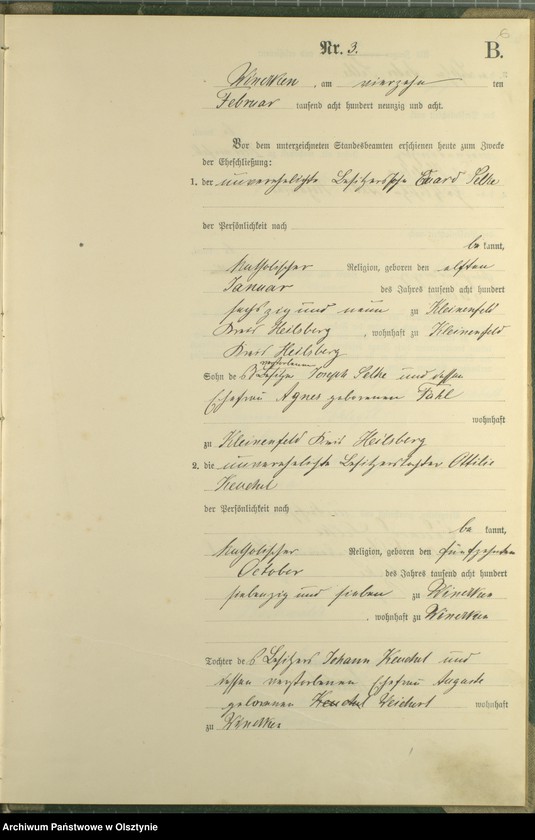 6
Nr. 3.
B.
Wöncken, am vierzehn ten
Februar tausend acht hundert neunzig und acht.
Vor dem unterzeichneten Standesbeamten erschienen heute zum Zwecke
der Eheschließung:
1. der unverehelichte Besitzersohn Eduard Selke
der Persönlichkeit nach
be kannt,
katholischer Religion, geboren den elften
Januar des Jahres tausend acht hundert
sechszig und neun zu Kleinenfeld
Kreis Heilsberg, wohnhaft zu Kleinenfeld
Kreis Heilsberg
verstorbenen
Sohn des Besitzers Joseph Selke und dessen
Ehefrau Agnes geborenen
wohnhaft
zu Kleinenfeld Kreis Heilsberg
2. die unverehelichte Besitzerstochter Ottilie
der Persönlichkeit nach
be kannt,
katholischer Religion, geboren den fünfzehnten
October des Jahres tausend acht hundert
siebenzig und sieben zu
, wohnhaft zu
Tochter des Besitzers Johann und
dessen verstorbenen Ehefrau Auguste
geborenen wohnhaft
zu
Archiwum Państwowe w Olsztynie